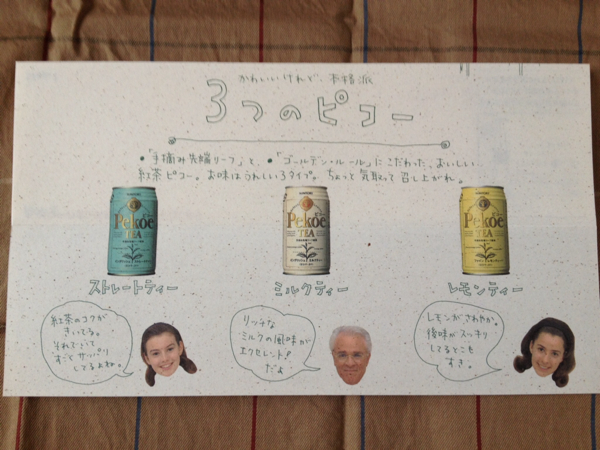 かわいいけれど、本格派
3つのピコー
●「手摘み先端リーフ」と、●「ゴールデン・ルール」にこだわった、おいしい
紅茶ピコー。お味はうれしい3タイプ。ちょっと気取って召し上がれ。
SUNTORY
Pekoe
TEA
ストレートティー
SUNTORY
Pekoe
TEA
ミルクティー
SUNTORY
Pekoe
TEA
レモンティー
紅茶のコクが
きいてる。
それでいて
すごくサッパリ
してるよね。
リッチな
ミルクの風味が
エクセレント!
だよ
レモンがさわやか。
後味がスッキリ
してるとこも
すき。